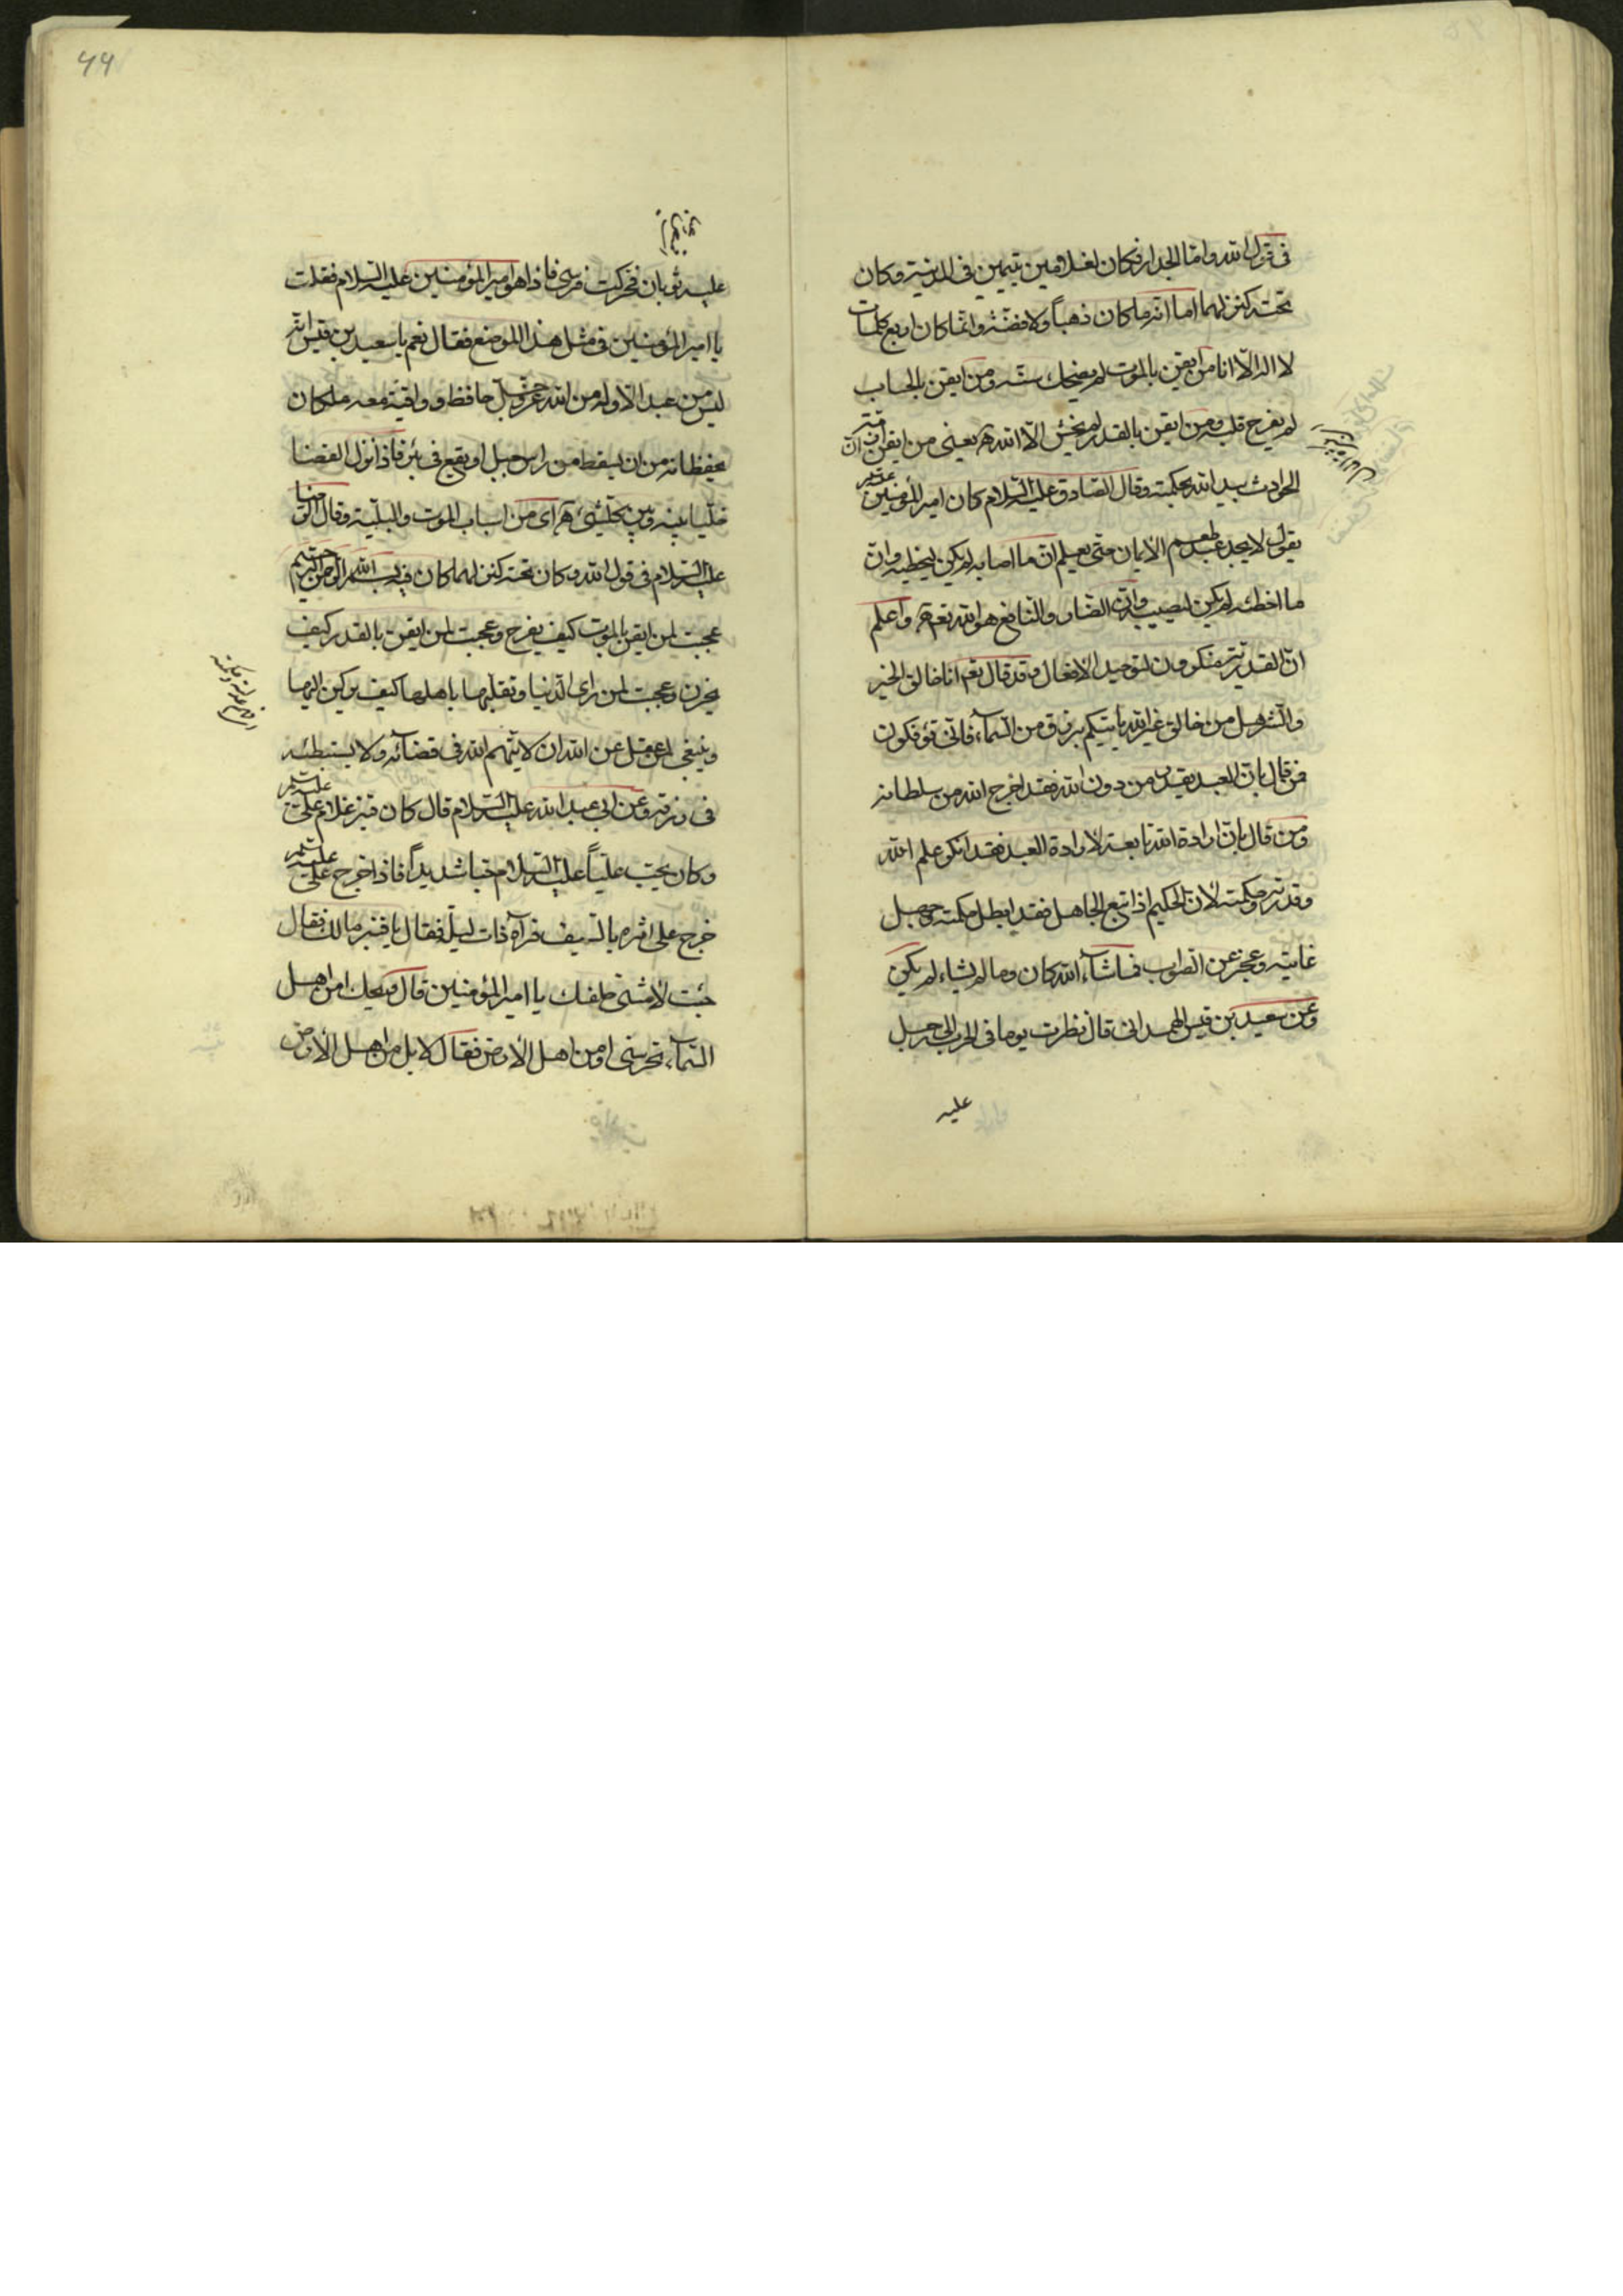 في قول الله واما الجدار فكان لغلامين يتيمين في المدينة وكان
تحته كنز لهما اما انه ما كان ذهباً ولا فضة وانما كان اربع كلمات
لا اله الا انا من ايقن بالموت لم يضحك سنه ومن ايقن بالحساب
لم يفرح قلبه ومن ايقن بالقدر لم يخش الا الله يعني من ايقن ان
الحوادث بيد الله بحكمته وقال الصادق عليه السلام كان امير المؤمنين
يقول لا يجد عبد طعم الايمان حتى يعلم ان ما اصابه لم يكن ليخطيه وان
ما اخطئه لم يكن ليصيبه وان الضار والنافع هو الله تع واعلم
ان القدرية منكرون لتوحيد الافعال وقد قال تعم انا خالق الخير
والشر هل من خالق غير الله ياتيكم برزق من السماء فانى تؤفكون
فمن قال بان العبد يقدر من دون الله فقد اخرج الله من سلطانه
ومن قال بان ارادة الله تابعة لارادة العبد فقد انكر علم الله
وقدرته وحكمته لان الحكيم اذا تبع الجاهل فقد ابطل حكمته وجهل
غايته وعجز عن الصواب فماشاء الله كان وما لم يشاء لم يكن
وعن سعيد بن قيس الهمداني قال نظرت يوما في الحرب الى رجل
عليه
۶۶
عليه ثوبان فحركت فرسي فاذا هو امير المؤمنين عليه السلام فقلت
يا امير المؤمنين في مثل هذا الموضع فقال نعم يا سعيد بن قيس انه
ليس من عبد الا وله من الله عز وجل حافظ وواقية معه ملكان
يحفظانه من ان يسقط من راس جبل او يقع في بئر فاذا نزل القضا
خليا بينه وبين كل شئ اى من اسباب الموت والبلية وقال الرضا
عليه السلام في قول الله وكان تحته كنز لهما كان فيه بسم الله الرحمن الرحيم
عجبت لمن ايقن بالموت كيف يفرح وعجبت لمن ايقن بالقدر كيف
يحزن وعجبت لمن راى الدنيا وتقلبها باهلها كيف يركن اليها
وينبغي لمن عقل عن الله ان لا يتهم الله في قضائه ولا يستبطئه
في رزقه وعن ابي عبد الله عليه السلام قال كان قنبر غلام علي
وكان يحب علياً عليه السلام حبا شديداً فاذا خرج علي
خرج على اثره بالسيف فرآه ذات ليلة فقال يا قنبر مالك فقال
جئت لامشى خلفك يا امير المؤمنين قال ويحك امن اهل
السماء تحرسني او من اهل الارض فقال لا بل من اهل الارض